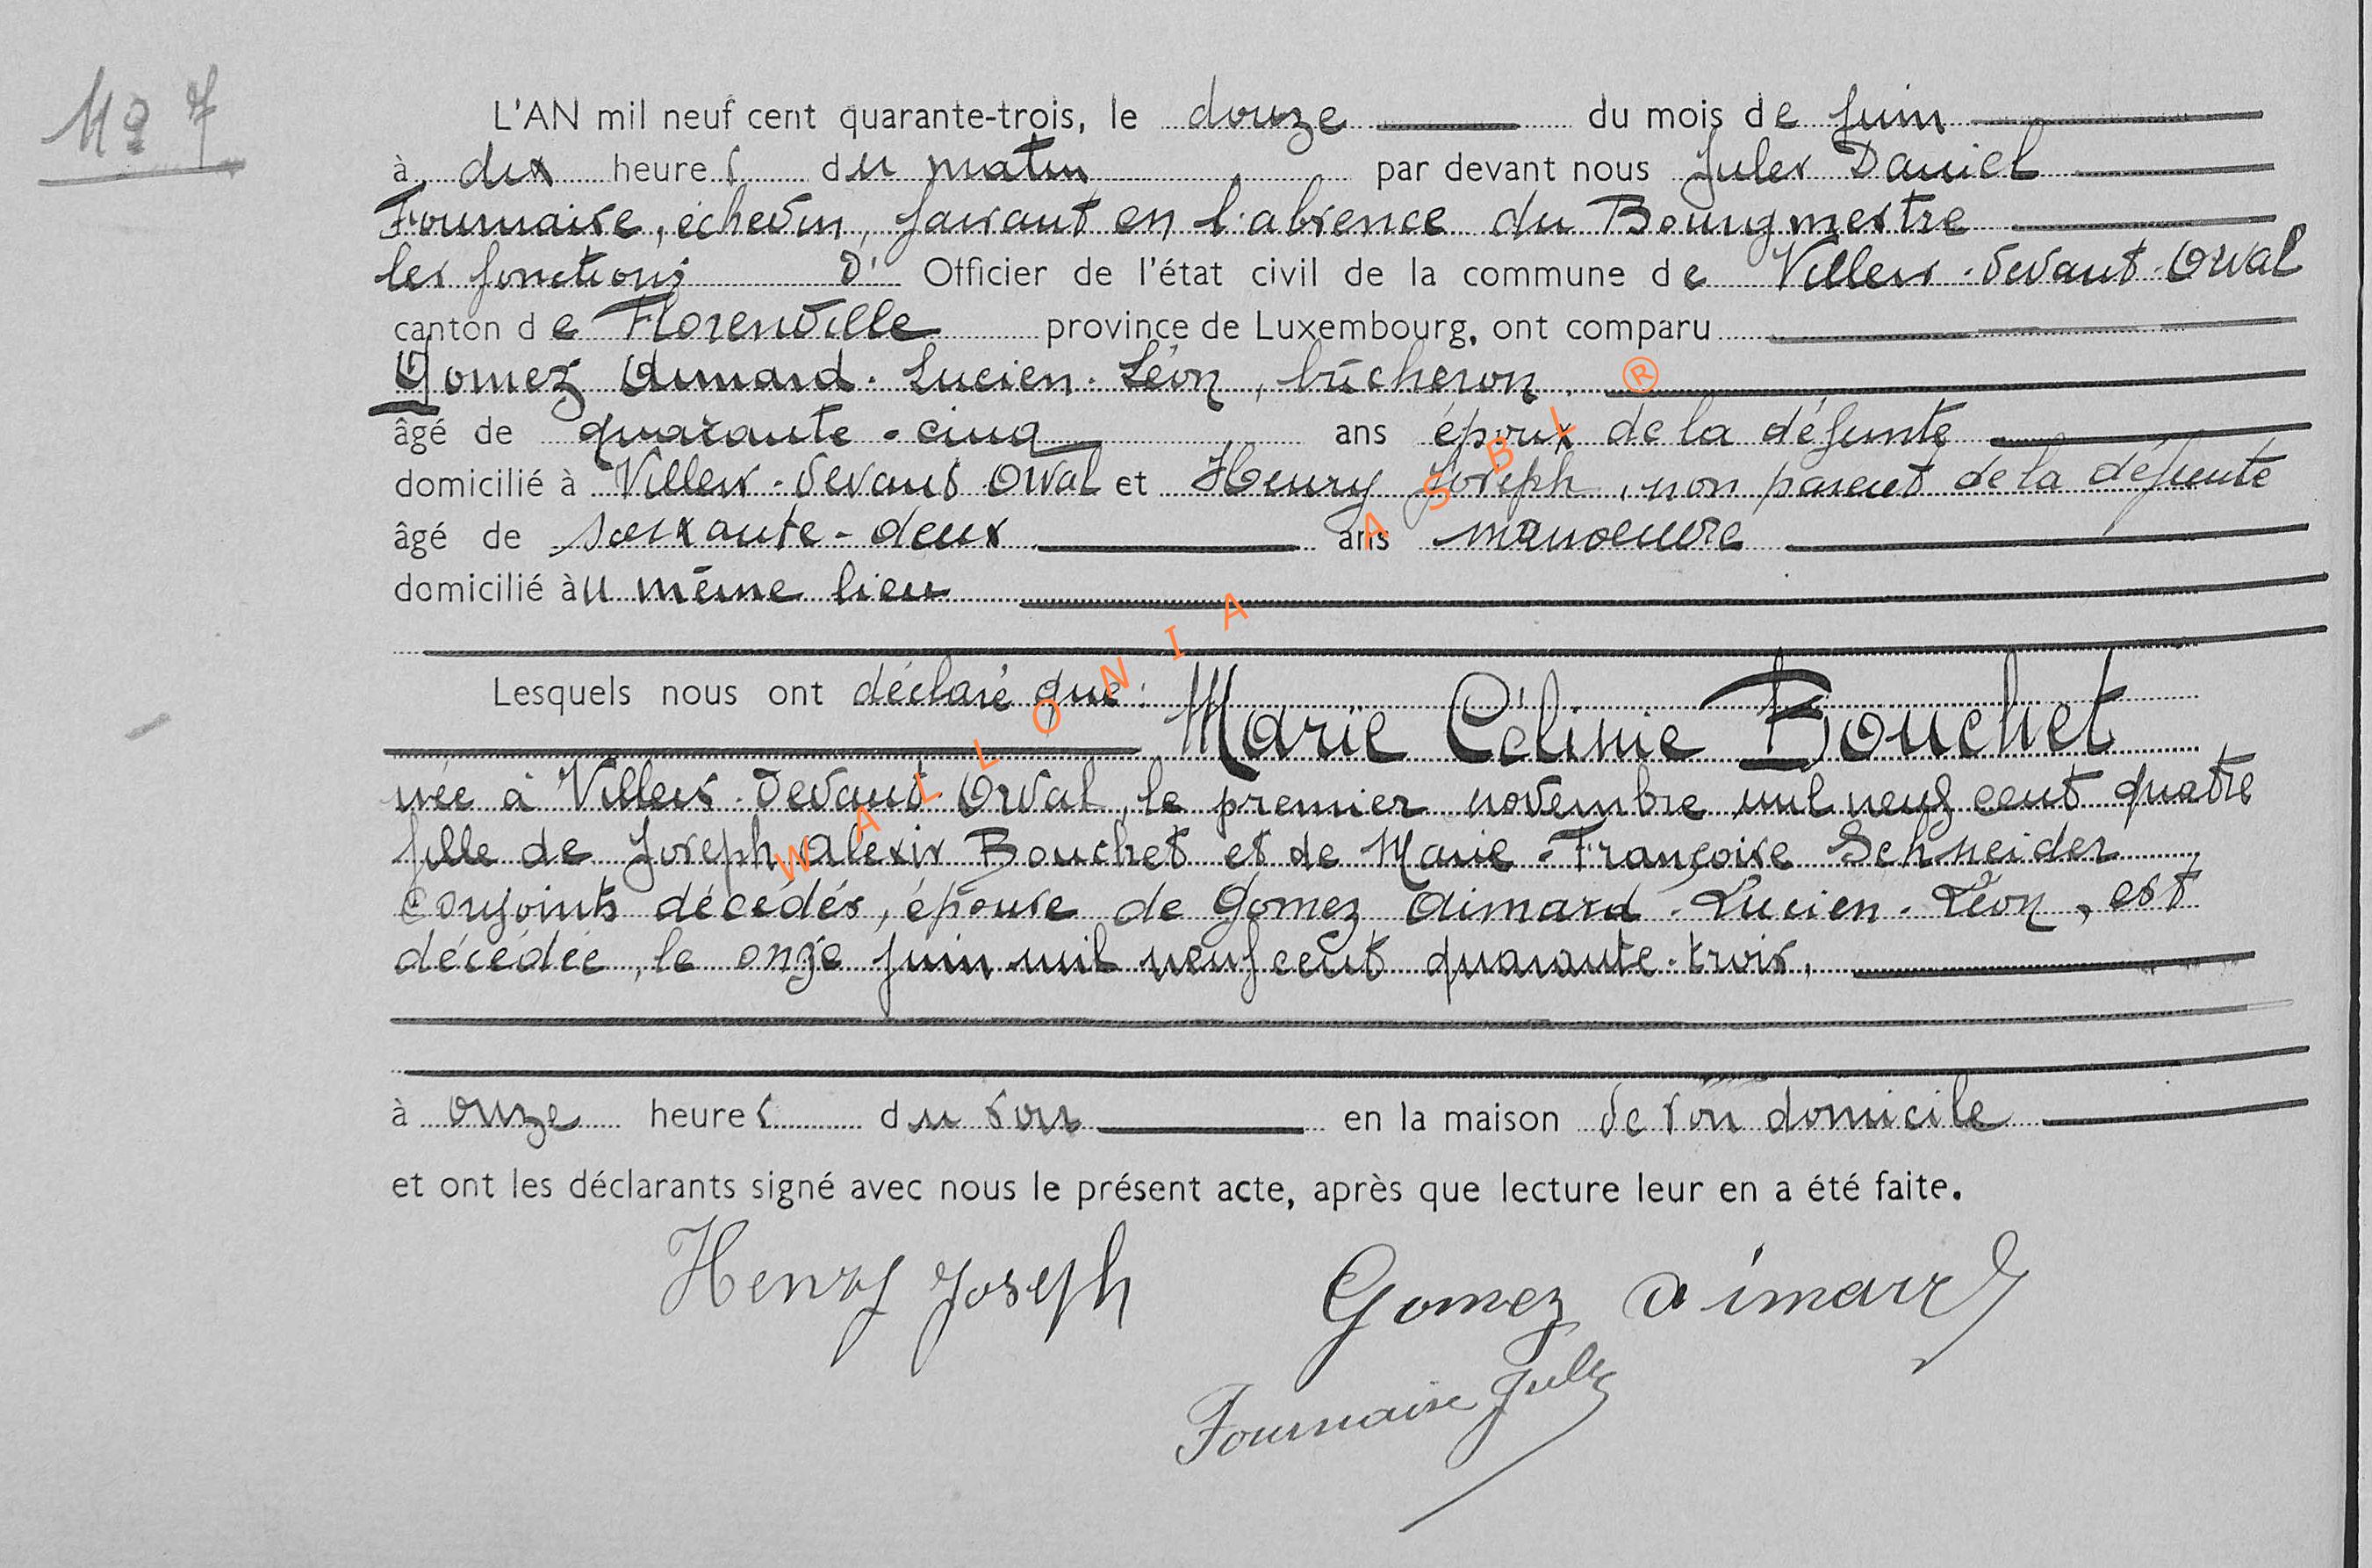 N° 7
L'AN mil neuf cent quarante-trois, le douze du mois de Juin
à dix heures du matin par devant nous Jules Daniel
Fournaise, échevin, faisant en l'absence du Bourgmestre
les fonctions d' Officier de l'état civil de la commune de Villers-devant-Orval
canton de Florenville province de Luxembourg, ont comparu
Gomez Aimard-Lucien-Léon, bûcheron,
âgé de quarante-cinq ans époux de la défunte
domicilié à Villers-devant Orval et Henry Joseph, non parent de la défunte
âgé de soixante-deux ans manoeuvre
domicilié au même lieu
Lesquels nous ont déclaré que :
Marie Célinie Bouchet
née à Villers-devant Orval, le premier novembre mil neuf cent quatre
fille de Joseph Alexis Bouchet et de Marie-Françoise Schneider
conjoints décédés, épouse de Gomez Aimard-Lucien-Léon, est
décédée, le onze juin mil neuf cent quarante-trois,
à onze heures du soir en la maison de son domicile
et ont les déclarants signé avec nous le présent acte, après que lecture leur en a été faite.
Henry Joseph Gomez Aimard
Fournaise Jules
WALLONIA ASBL ®